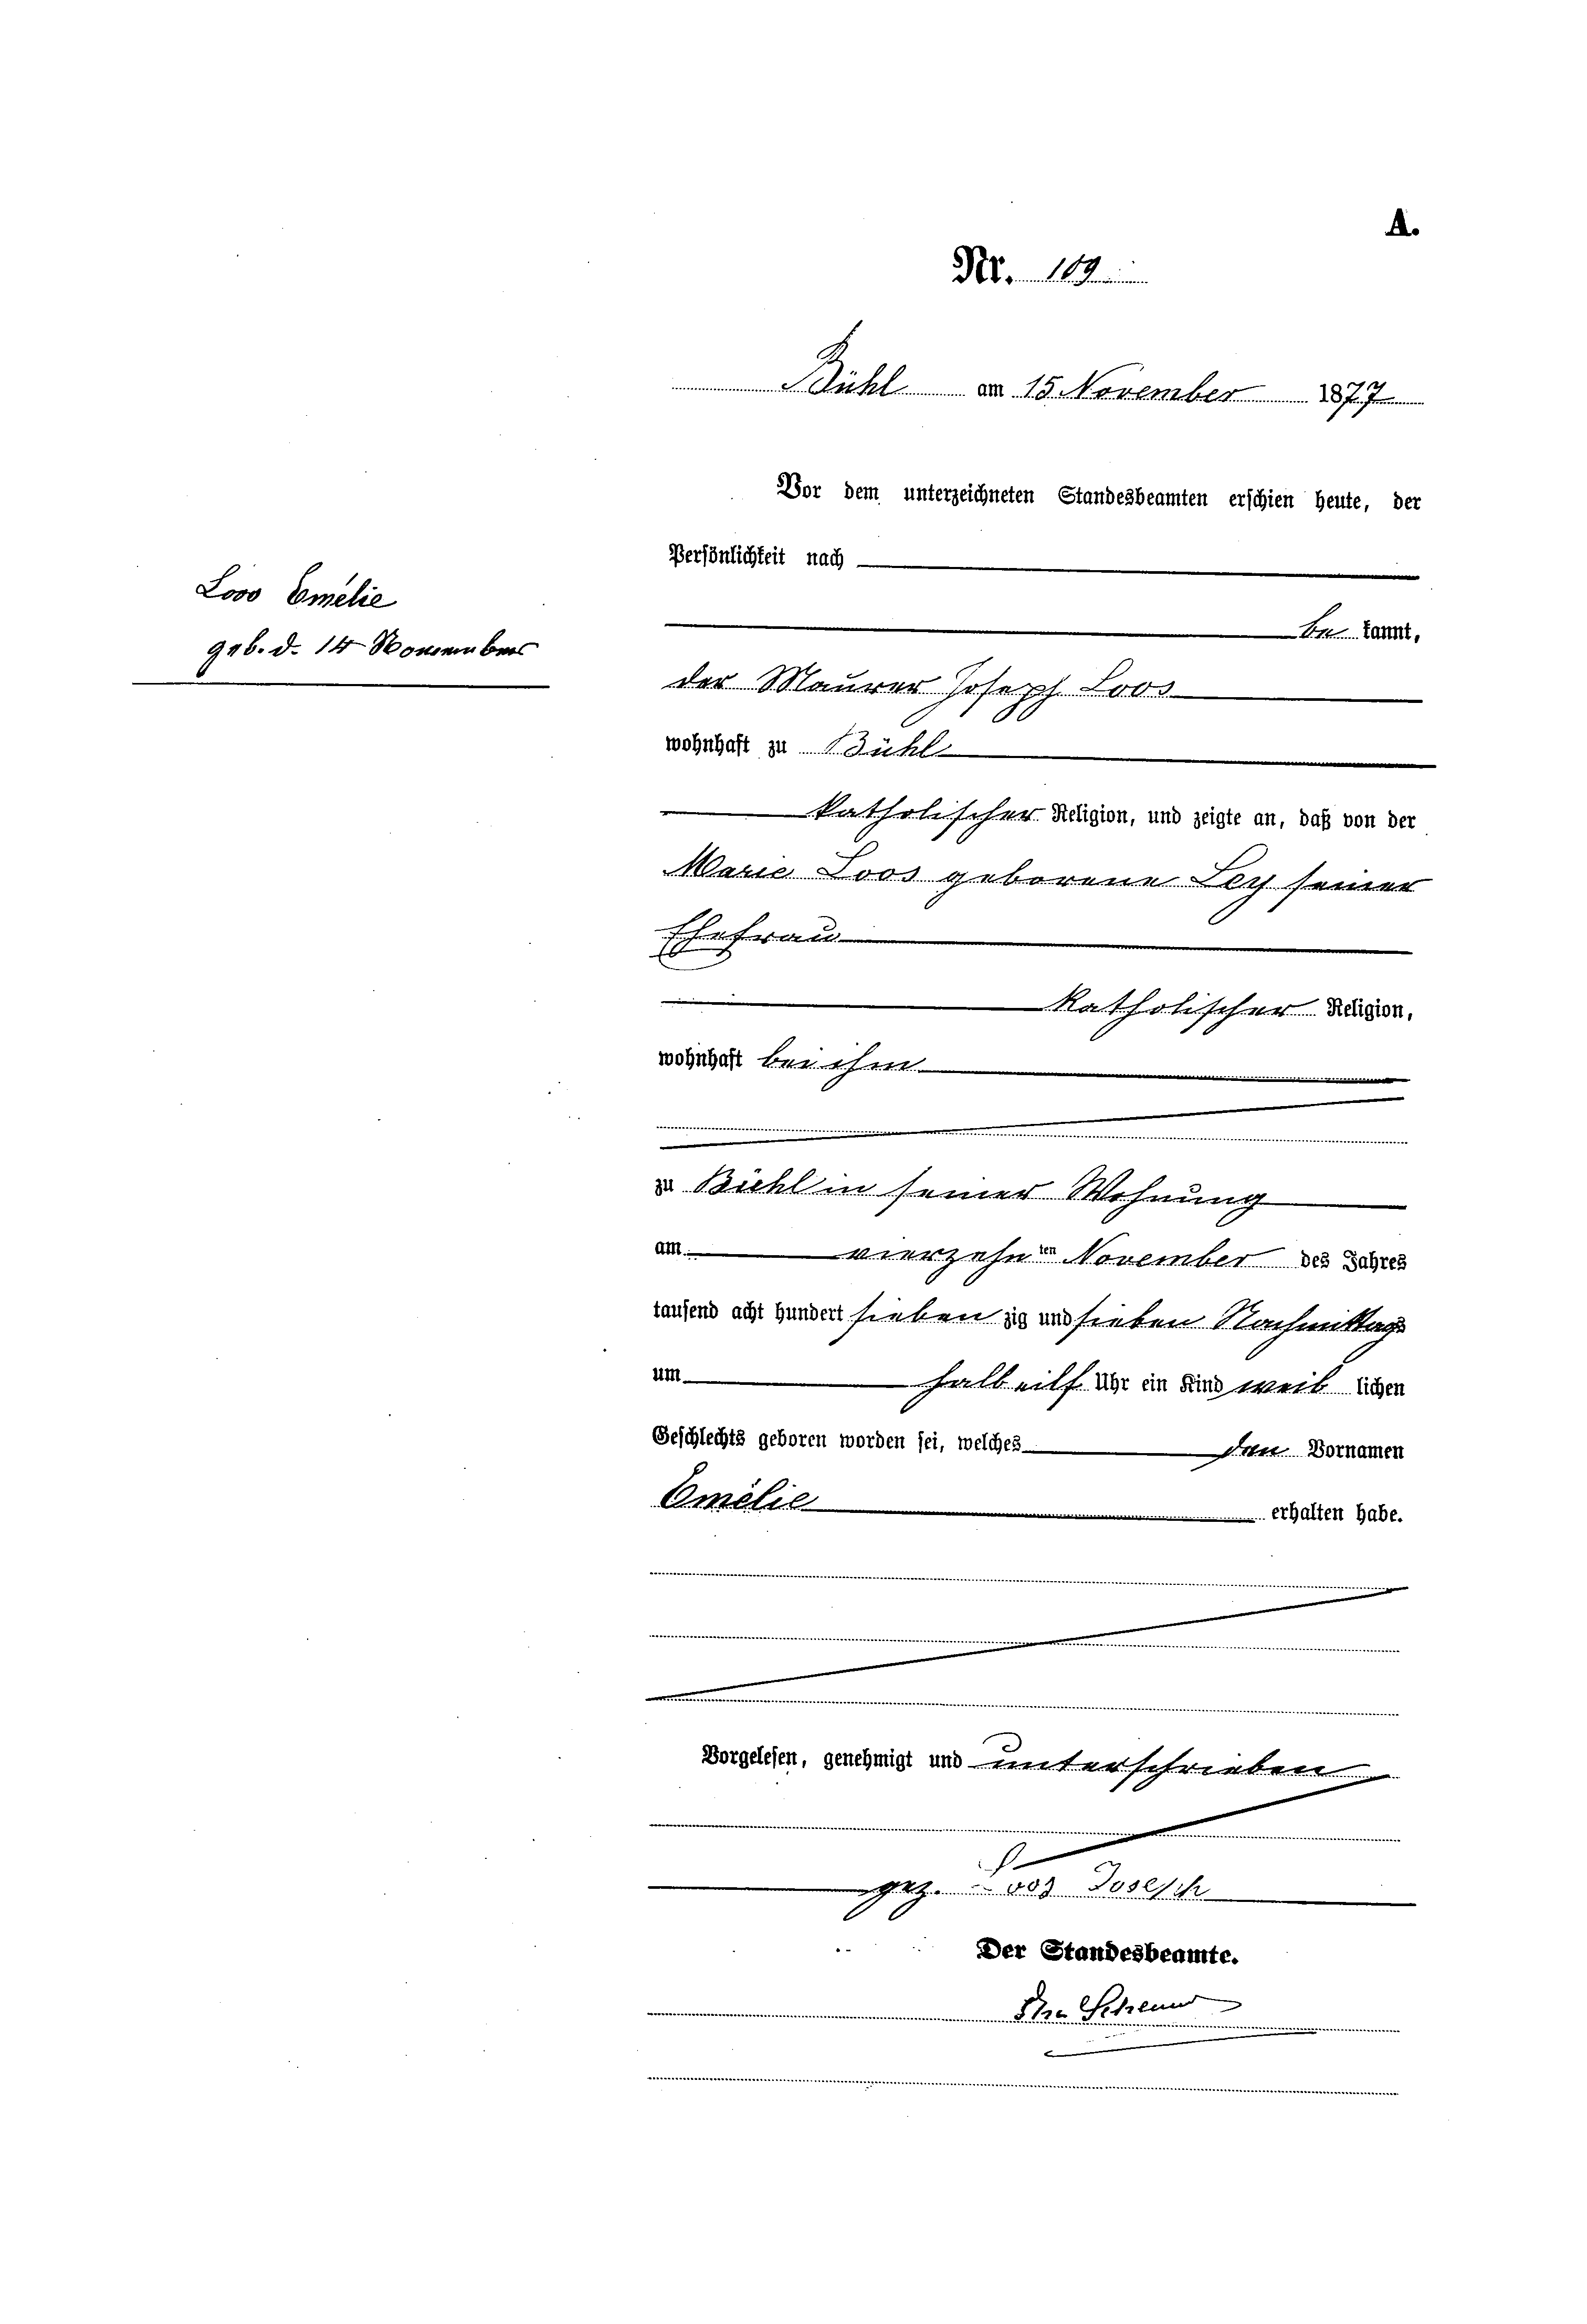 A.
Nr. 109
Bühl am 15 November 1877
Vor dem unterzeichneten Standesbeamten erschien heute, der
Persönlichkeit nach
Loos Emélie
geb. d. 14 November
be kannt,
der Maurer Joseph Loos
wohnhaft zu Bühl
katholischer Religion, und zeigte an, daß von der
Marie Loos geborene Ley seiner
Ehefrau
katholischer Religion,
wohnhaft bei ihm
zu Bühl in seiner Wohnung
am vierzehnten November des Jahres
tausend acht hundert sieben zig und sieben Nachmittags
um halb eilf Uhr ein Kind weib lichen
Geschlechts geboren worden sei, welches den Vornamen
Emélie erhalten habe.
Vorgelesen, genehmigt und unterschrieben
gez. Loos Joseph
Der Standesbeamte.